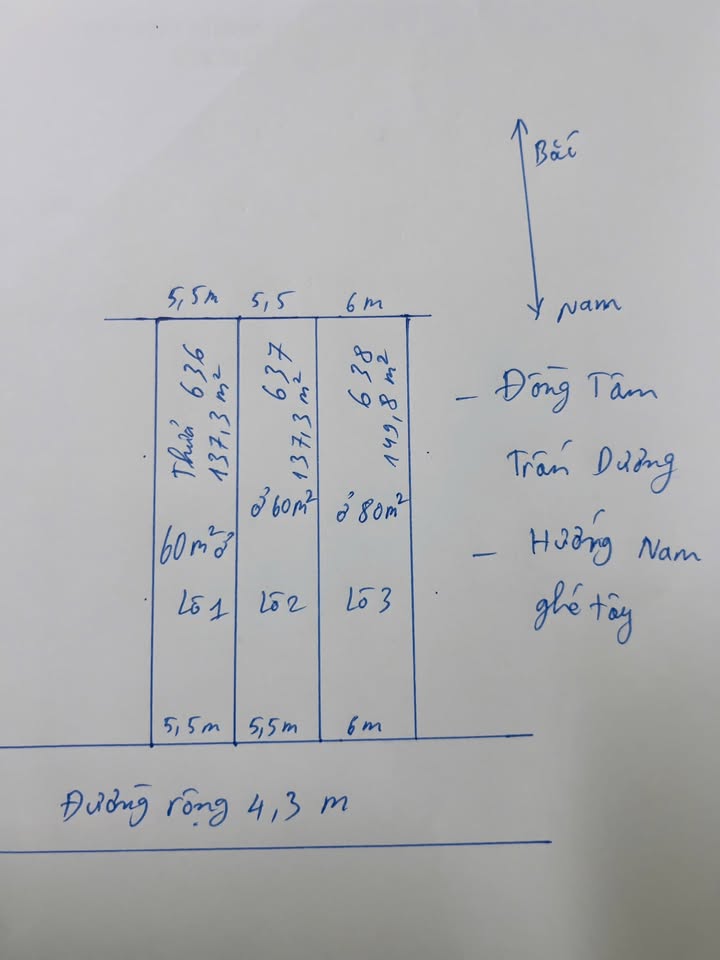 Bắc
Nam
5,5m 5,5 6m
Thửa 636
137,3 m²
637
137,3 m²
638
149,8 m²
60m² ở
ở 60m²
ở 80m²
Lô 1 Lô 2 Lô 3
5,5m 5,5m 6m
Đường rộng 4,3 m
- Đồng Tâm
Trấn Dương
- Hướng Nam
ghé tây